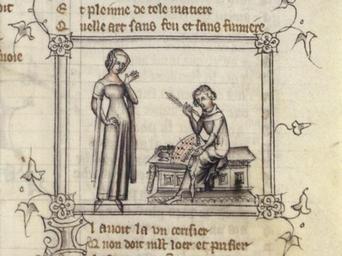 oit
Et plenne de tele matiere
Quelle art sans fou et sans fumiere
uoie
I lauoit la vn cerisier
Qu non doit mlt loer et prisier